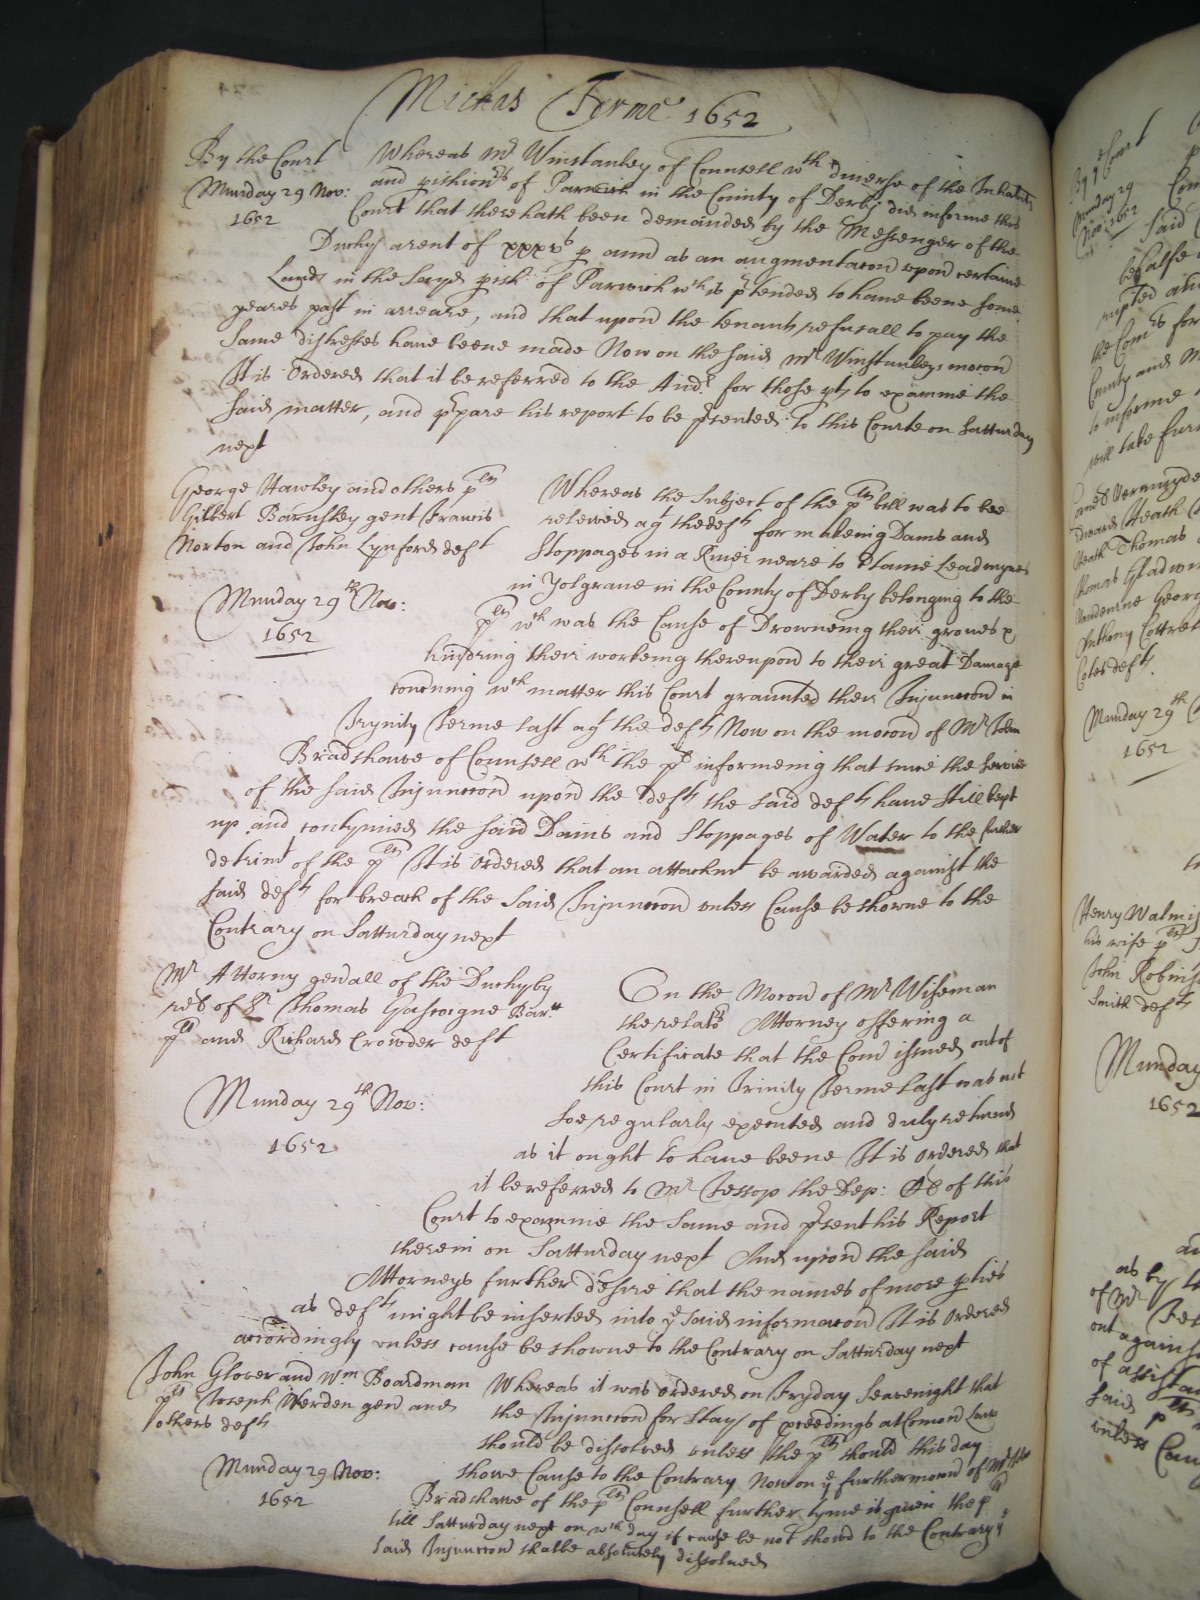 Michas Terme 1652
By the Court
Munday 29 Nov:
1652
Whereas Mr Winstanley of Counsell wth diverse of the Inhabits
and pishionrs of Parwich in the County of Derby did informe this
Court that there hath been demanded by the Messenger of the
Duchy a rent of xxxvs p ann as an augmentacon upon certaine
Lands in the sayd pish of Parwich wch is prtended to have beene some
yeares past in arreare, and that upon the tenants refusall to pay the
same distresses have beene made Now on the said Mr Winstanleys mocon
It is Ordered that it be referred to the Audr for those pts to examine the
said matter, and prpare his report to be prsented to this Courte on Satturday
next
George Hawley and others plts
Gilbert Barnsley gent Francis
Norton and John Lynford deft
Munday 29th Nov:
1652
Whereas the Subject of the plts bill was to bee
releived agt the defts for makeing Dams and
Stoppages in a River neare to Leadmynes
in Yolgrave in the County of Derby belonging to the
plts wch was the Cause of Drowneing their groves &
hindring their workeing thereupon to their great Damage
concerning wch matter this Court graunted their Injuncon in
Trynity Terme last agt the defts Now on the mocon of Mr John
Bradshawe of Counsell wth the plts informeing that since the service
of the said Injuncon upon the defts the said defts have still kept
up and contynued the said Dams and Stoppages of Water to the further
detrimt of the plts It is Ordered that an attachmt be awarded against the
said defts for breach of the said Injuncon unles Cause be showne to the
Contrary on Satturday next
Mr Attorny genall of the Duchy by
of Sr Thomas Gascoigne Bartt
plt and Richard Crowder deft
Munday 29th Nov:
1652
On the Mocon of Mr Wiseman
the relators Attorney offering a
Certificate that the Comn issued out of
this Court in Trinity Terme last was not
soe regularly executed and duly returned
as it ought to have beene It is Ordered that
it be referred to Mr Jessop the Dep: of this
Court to examine the same and prsent his Report
therein on Satturday next And upon the said
Attorneys further desire that the names of more pties
as defts might be inserted into ye said informacon It is Ordered
accordingly unless cause be showne to the Contrary on Satturday next
John Glover and Wm Boardman
plts Joseph Werden gen and
others defts
Munday 29 Nov:
1652
Whereas it was ordered on Fryday Seavenight that
the Injuncon for stay of pceedings at Comon Law
should be dissolved unles the plts should this day
showe Cause to the Contrary Now on ye further mocon of Mr John
Bradshawe of the plts Counsell further tyme is given the plts
till Satturday next on wch day if cause be not showd to the Contrary ye
said Injuncon shalbe absolutely dissolved
By ye Court
Munday 29
Nov: 1652
said
behalfe
County and
to informe
will take
Heath
Thomas
George
Anthony
defts
Munday 29th
1652
Henry
his wife plts
John
Smith defts
Munday
1652
as by
of Mr
out against
of
said plts
unless